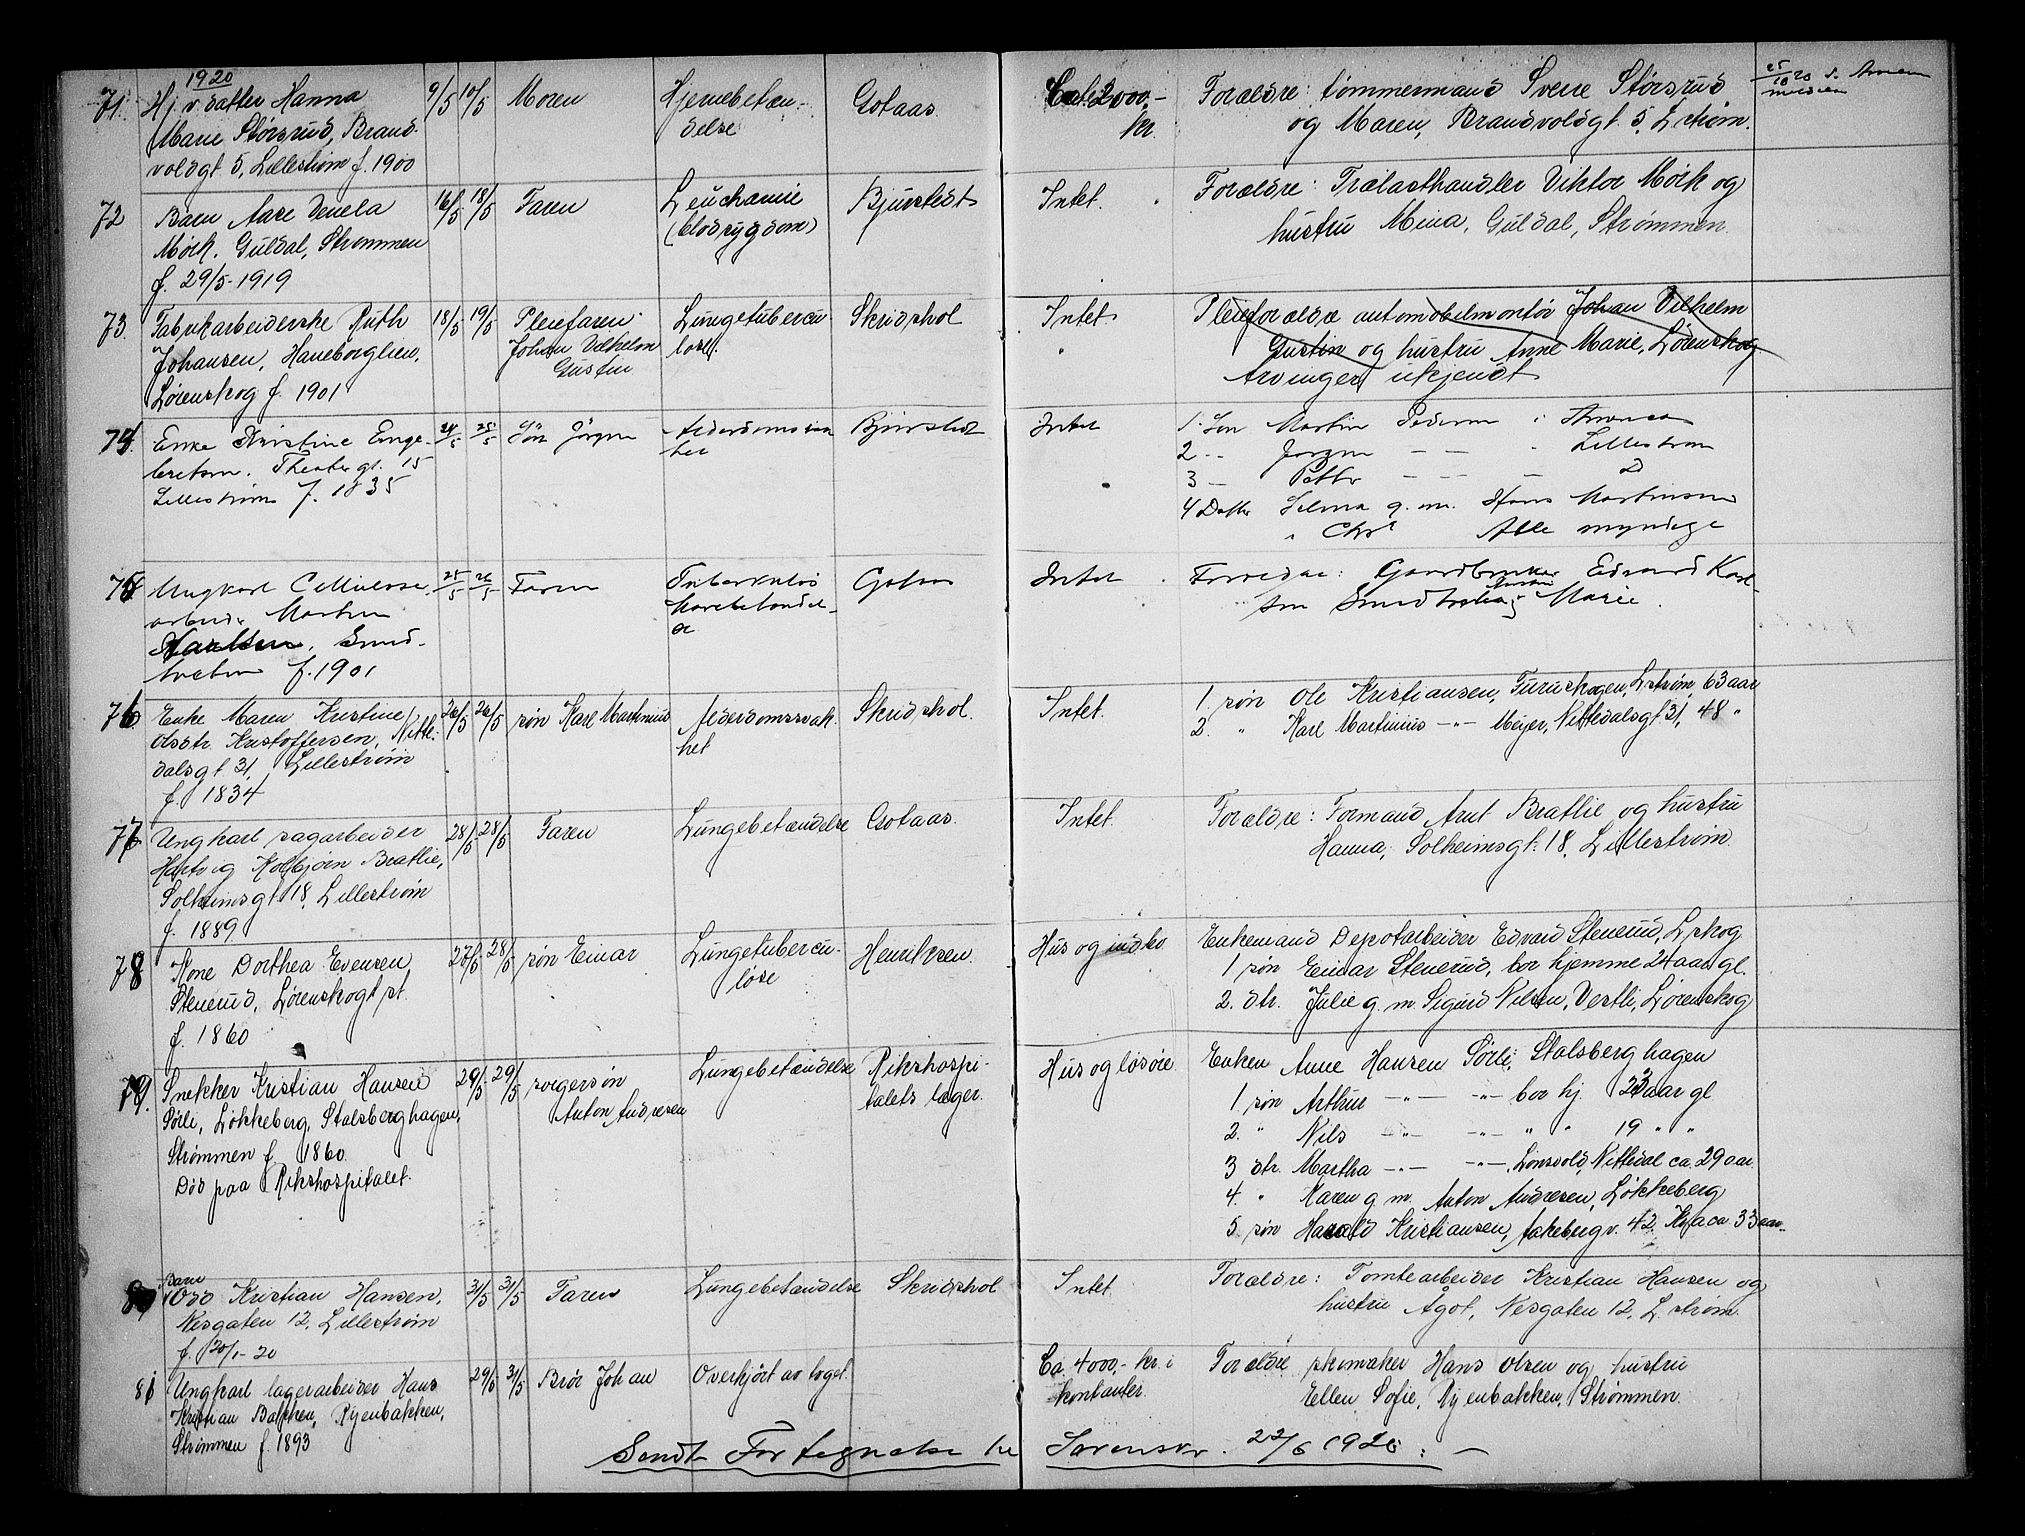 1920
71. Hj. v. datter Hanna 9/5 10/5 Moren Hjernebetæn- Gotaas. Ca 2000,- Forældre: tømmermand Sverre Størsrud 25/10 20
Marie Størsrud, Brand- delse kr. og Maren, Brandvoldgt. 5, L.strøm.
voldgt 5, Lillestrøm f. 1900
72 Barn Aase Venela 16/5 18/5 Faren Leuchamie Bjurstedt Intet. Forældre: Trælasthandler Viktor Mørk og
Mørk. Guldal, Strømmen (blodsygdom) hustru Mina, Guldal, Strømmen.
f. 29/5-1919
73. Fabrikarbeiderske Ruth 18/5 19/5 Pleiefaren Lungetubercu Skridshol Intet Pleieforældre automobilmontør Johan Vilhelm
Johansen, Haneborglien, Johan Vilhelm lose. Gustin og hustru Anne Marie, Lørenskog
Lørenskog f. 1901 Gustin Arvinger ukjendt
74. Enke Kristine Enge- 24/5 25/5 Søn Jörgen Alderdomssvak Bjurstedt Intet 1. Søn Martin Pedersen i
bretsen. Theatergt. 15 het 2 -- Jørgen -- -- Lillestrøm
Lillestrøm f. 1835 3 - Petter -- -- D
4 Datter Selma g. m. Hans Martinsen
Alle myndige
75 Ungkarl Cellulose- 25/5 26/5 Faren Tuberkuløs Gotaas Intet Forældre: Gaardbruker Edvard Karl-
arbeider Martin sen og Marie.
Karlsen,
f. 1901
76. Enke Maren Kristine 26/5 26/5 søn Karl Martinius Alderdomssvak- Skridshol. Intet. 1. søn Ole Kristiansen, Furuskogen, L.strøm, 63 aar
Olsdtr. Kristoffersen, Nitte- het 2. " Karl Martinius -"- Meyer, Nittedalsgt. 31, 48 "
dalsgt. 31, Lillestrøm
f. 1834
77 Ungkarl sagarbeider 28/5 28/5 Faren Lungebetændelse Gotaas. Intet. Forældre: Formand Arnt Bratlie og hustru
Hartvig Kolbjørn Bratlie, Hanna, Solheimsgt. 18, Lillestrøm.
Solheimsgt 18, Lillestrøm
f. 1889
78 Kone Dorthea Evensen 27/5 28/5 søn Einar Lungetubercu- Henriksen. Hus og indbo Enkemand Depotarbeider Edvard Stenerud, L.skog
Stenerud, Lørenskogt pt. løse 1 søn Einar Stenerud, bor hjemme 24 aar gl.
f. 1860 2. dtr. Julie g. m. Sigurd Nilsen, Vestli, Lørenskog
79. Snekker Kristian Hansen 29/5 29/5 svigersøn Lungebetændelse Rikshospi- Hus og løsøre Enken Anne Hansen Sørli, Stalsberghagen
Sørli, Løkkeberg, Stalsberghagen, Anton Andresen talets læger. 1 søn Arthur -"- -"- bor hj. 23 aar gl
Strømmen f. 1860. 2. " Nils -"- -"- " " 19 " "
Død paa Rikshospitalet. 3 dtr. Martha -"- -"-, Lønsvold, Nittedal ca. 29 aar.
4. " Karen g m. Anton Andresen, Løkkeberg
5. søn Harald Kristiansen, Aakebergv. 42, Kra ca 33 aar.
Barn
80 Odd Kristian Hansen, 31/5 31/5 Faren Lungebetændelse Skridshol Intet. Forældre: Tomtearbeider Kristian Hansen og
Nesgaten 12, Lillestrøm hustru Ågot, Nesgaten 12, L.strøm.
f. 20/1-20
81 Ungkarl lagerarbeider Hans 29/5 31/5 Bror Johan Overkjørt av toget. Ca 4000,- kr. i Forældre skomaker Hans Olsen og hustru
Kristian Bakken, Ryenbakken, kontanter. Ellen Sofie, Ryenbakken, Strømmen.
Strømmen f. 1893
Sendt Fortegnelse til Sorenskr. 22/6 1920 : -